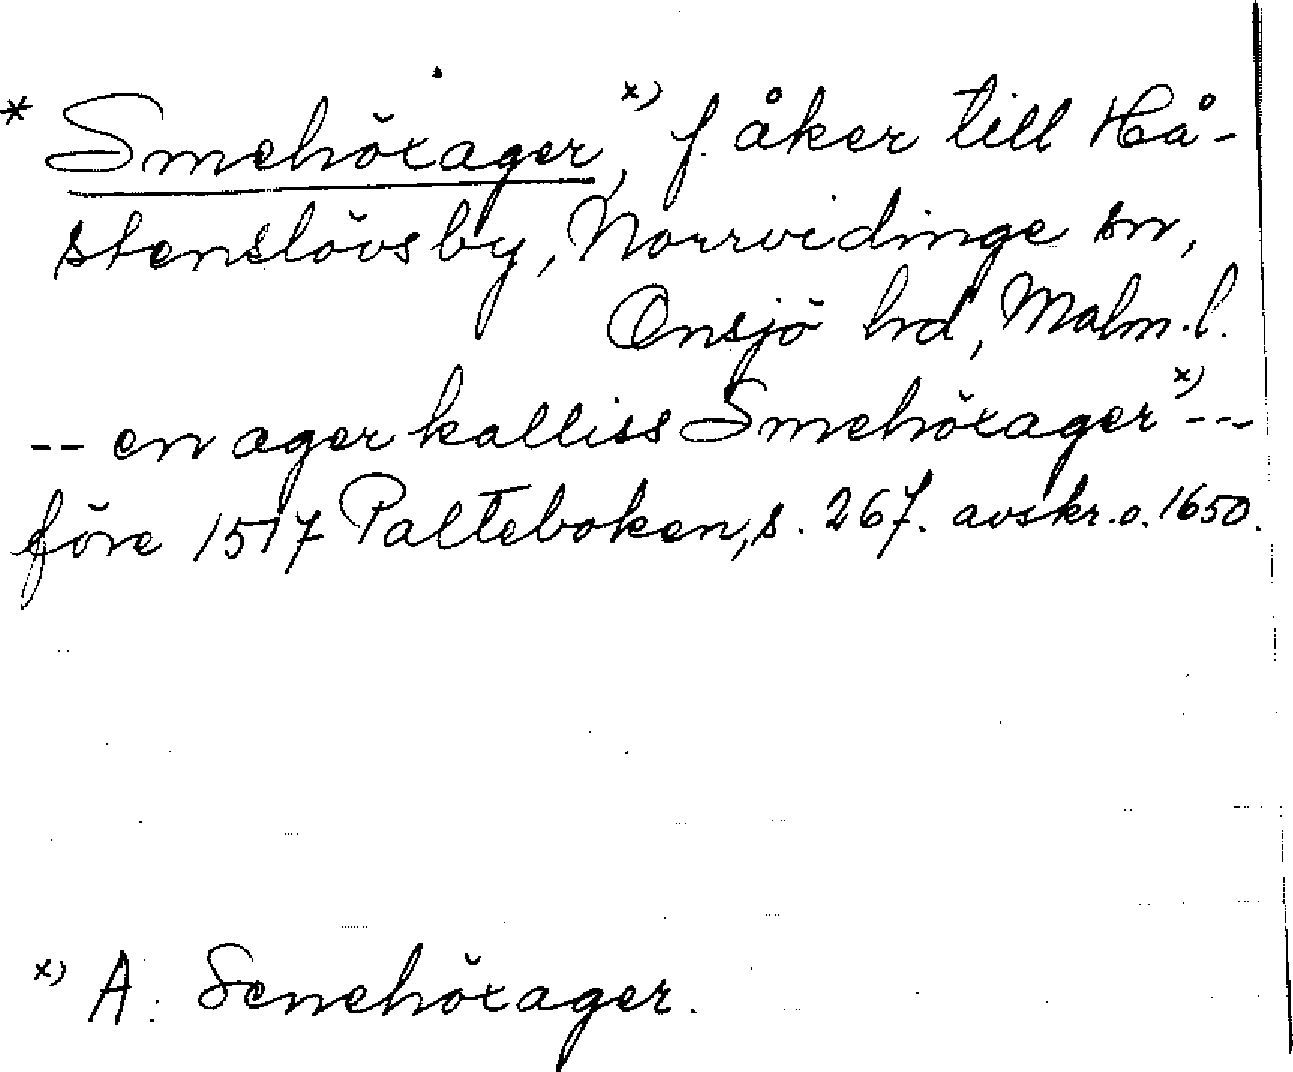 * Smehöxager ˣ⁾, f. åker till Hå-
stenslövs by, Norrvidinge sn,
Onsjö hd, Malm. l.
-- en ager kalliss Smehöxager ˣ⁾ --
före 1517 Palteboken, s. 267. avskr. o. 1650.
ˣ⁾ A: Senehöxager.